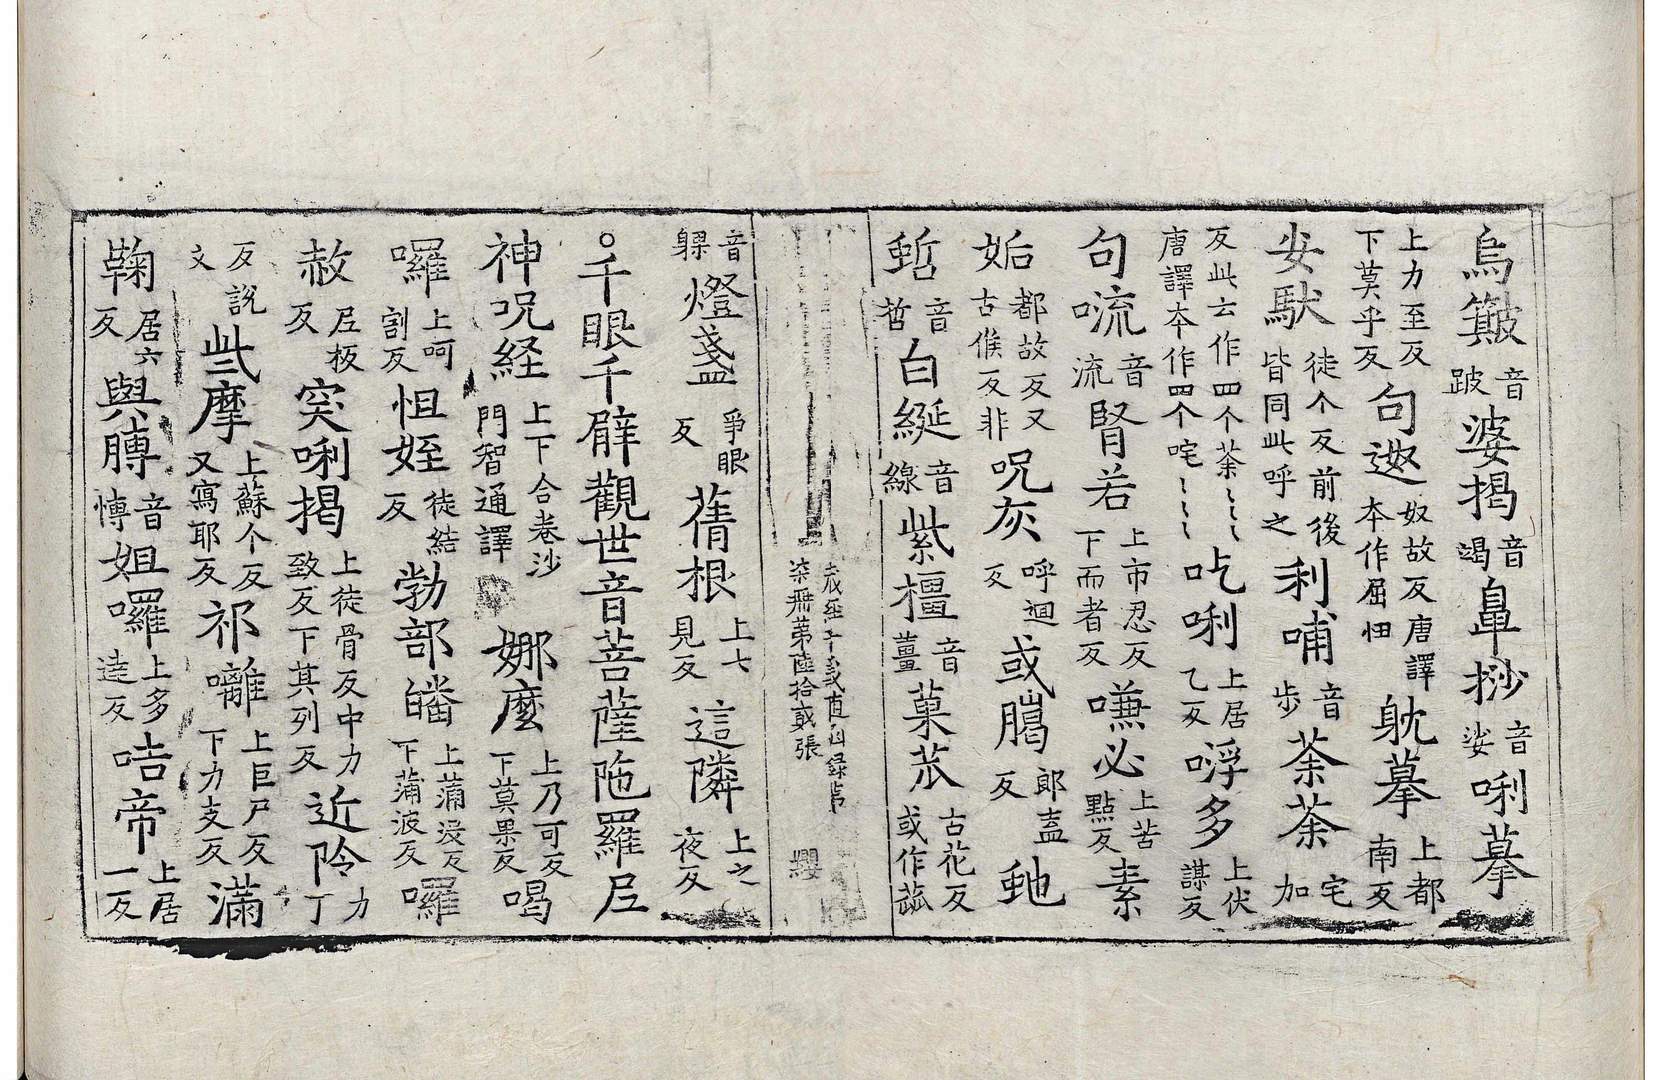 烏簸音跛婆揭音竭鼻挱音娑唎摹
上力至反下莫乎反句遬奴故反唐譯本作屈怞躭摹上都南反
安馱徒个反前後皆同此呼之利哺音步荼荼宅加
反此云作四个荼〻〻〻唐譯本作四个咤〻〻〻吃唎上居乙反哹多上伏謀反
句㖻音流腎若上市忍反下而者反嗛必上苦點反素
姤都故反又古候反非呪灰呼迴反或臈郎盍反虵
蜇音哲白綖音線紫橿音薑菓苽古花反或作蓏
櫻
音躶燈盞爭眼反蒨根上七見反這隣上之夜反
○千眼千臂觀世音菩薩陁羅尼
神呪経上下合卷沙門智通譯娜麼上乃可反下莫果反喝
囉上呵割反怛姪徒結反勃部皤上蒲沒反下蒲波反囉
赦𡰱板反突唎揭上徒骨反中力致反下其列反近阾力丁
反說文㱔摩上蘇个反又寫耶反祁囄上巨尸反下力支反滿
鞠居六反與膞音慱姐囉上多達反咭帝上居一反